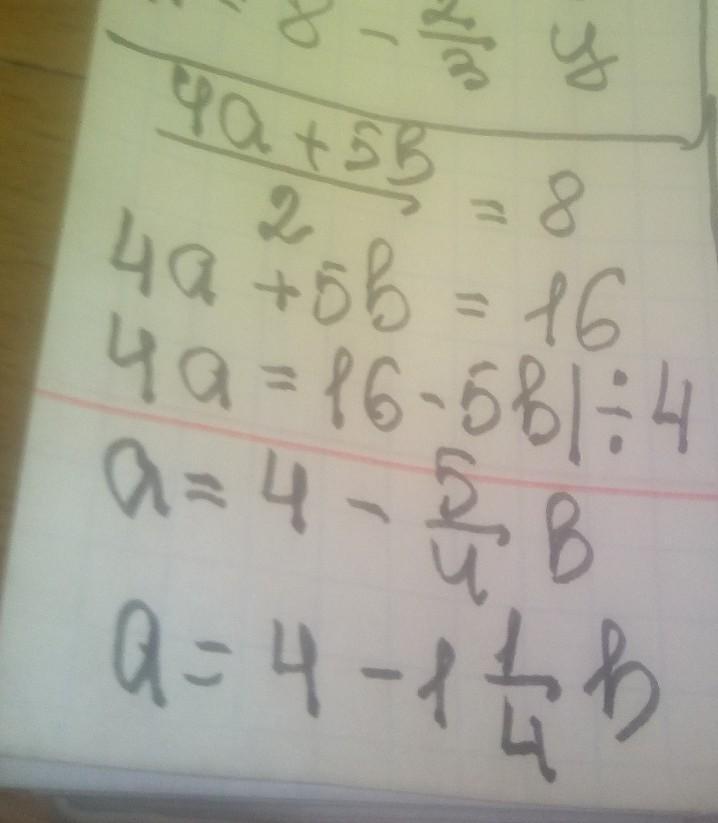 8 - 2/3 y
(4a + 5b)/2 = 8
4a + 5b = 16
4a = 16 - 5b | ÷ 4
a = 4 - 5/4 b
a = 4 - 1 1/4 b